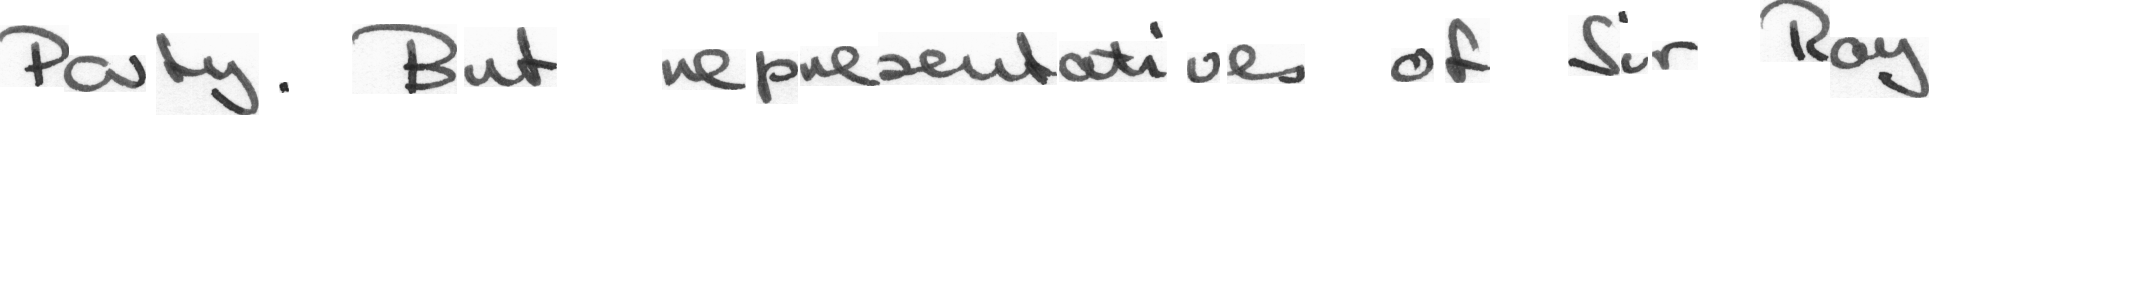 Party. But representatives of Sir Roy